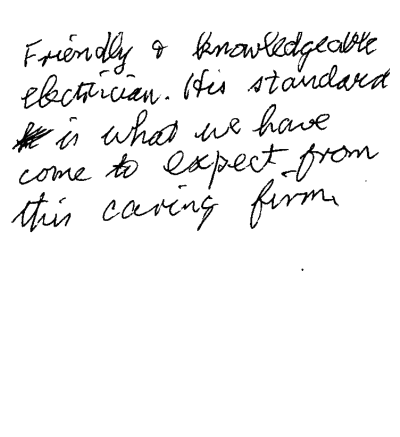 Friendly & knowledgeable
electrician. His standard
is what we have
come to expect from
this caring firm.